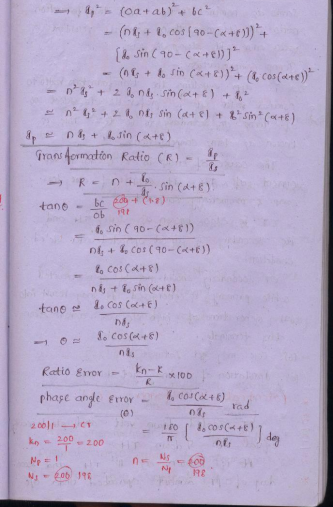 ⟹ I_p² = (oa+ab)² + bc²
= (nI_s + I_o cos(90-(α+δ)))² +
[I_o sin(90-(α+δ))]²
= (nI_s + I_o sin(α+δ))² + (I_o cos(α+δ))²
= n²I_s² + 2 I_o nI_s sin(α+δ) + I_o²
≈ n²I_s² + 2 I_o nI_s sin(α+δ) + I_o² sin²(α+δ)
I_p ≈ nI_s + I_o sin(α+δ)
Transformation Ratio (R) = I_p/I_s
⟹ R = n + I_o/I_s . sin(α+δ)
tanθ = bc/ob
= I_o sin(90-(α+δ)) / nI_s + I_o cos(90-(α+δ))
= I_o cos(α+δ) / nI_s + I_o sin(α+δ)
tanθ ≅ I_o cos(α+δ) / nI_s
⟹ θ ≈ I_o cos(α+δ) / nI_s
Ratio Error = (k_n - R)/R × 100
phase angle Error (θ) = I_o cos(α+δ) / nI_s rad
= 180/π [I_o cos(α+δ) / nI_s] deg
200/1 → CT
k_n = 200/1 = 200
N_p = 1
N_s = 200 198
n = N_s/N_p = 200 198